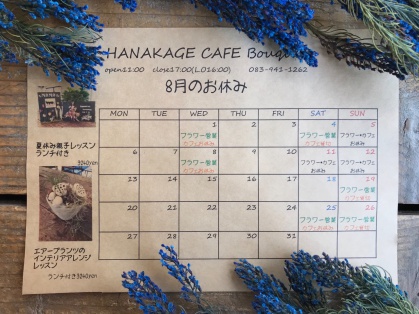 HANAKAGE CAFE Bouq
open11:00 close17:00(L.O16:00) 083-941-1262
8月のお休み
MON TUE WED THU FRI SAT SUN
1 2 3 4 5
フラワー営業 フラワー営業 フラワー・カフェ
カフェお休み お休み
6 7 8 9 10 11 12
フラワー営業 フラワー・カフェ フラワー・カフェ
カフェお休み お休み お休み
13 14 15 16 17 18 19
フラワー営業
20 21 22 23 24 25 26
フラワー営業 フラワー営業
27 28 29 30 31
夏休み親子レッスン
ランチ付き
3240yen
エアープランツの
インテリアアレンジ
レッスン
ランチ付き3240yen